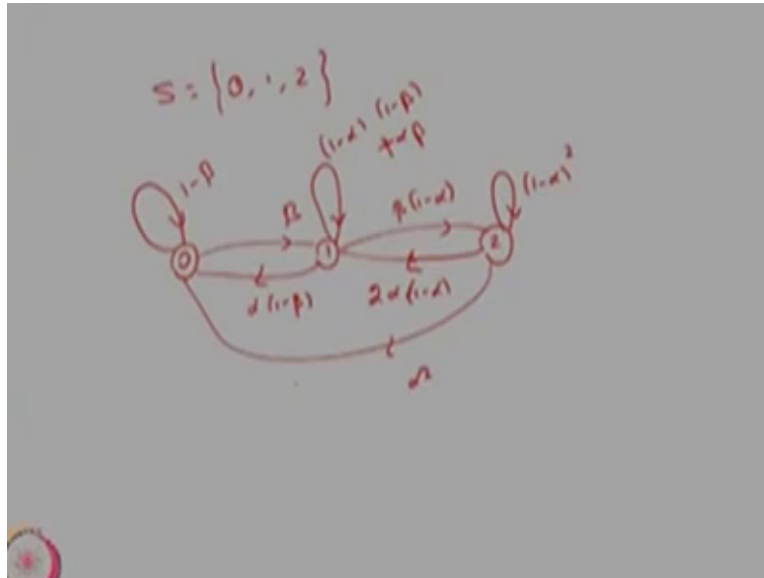 S = {0, 1, 2}
1-β
(1-α) (1-β)
+αβ
β
β(1-α)
(1-α)²
0
1
2
α(1-β)
2α(1-α)
α²